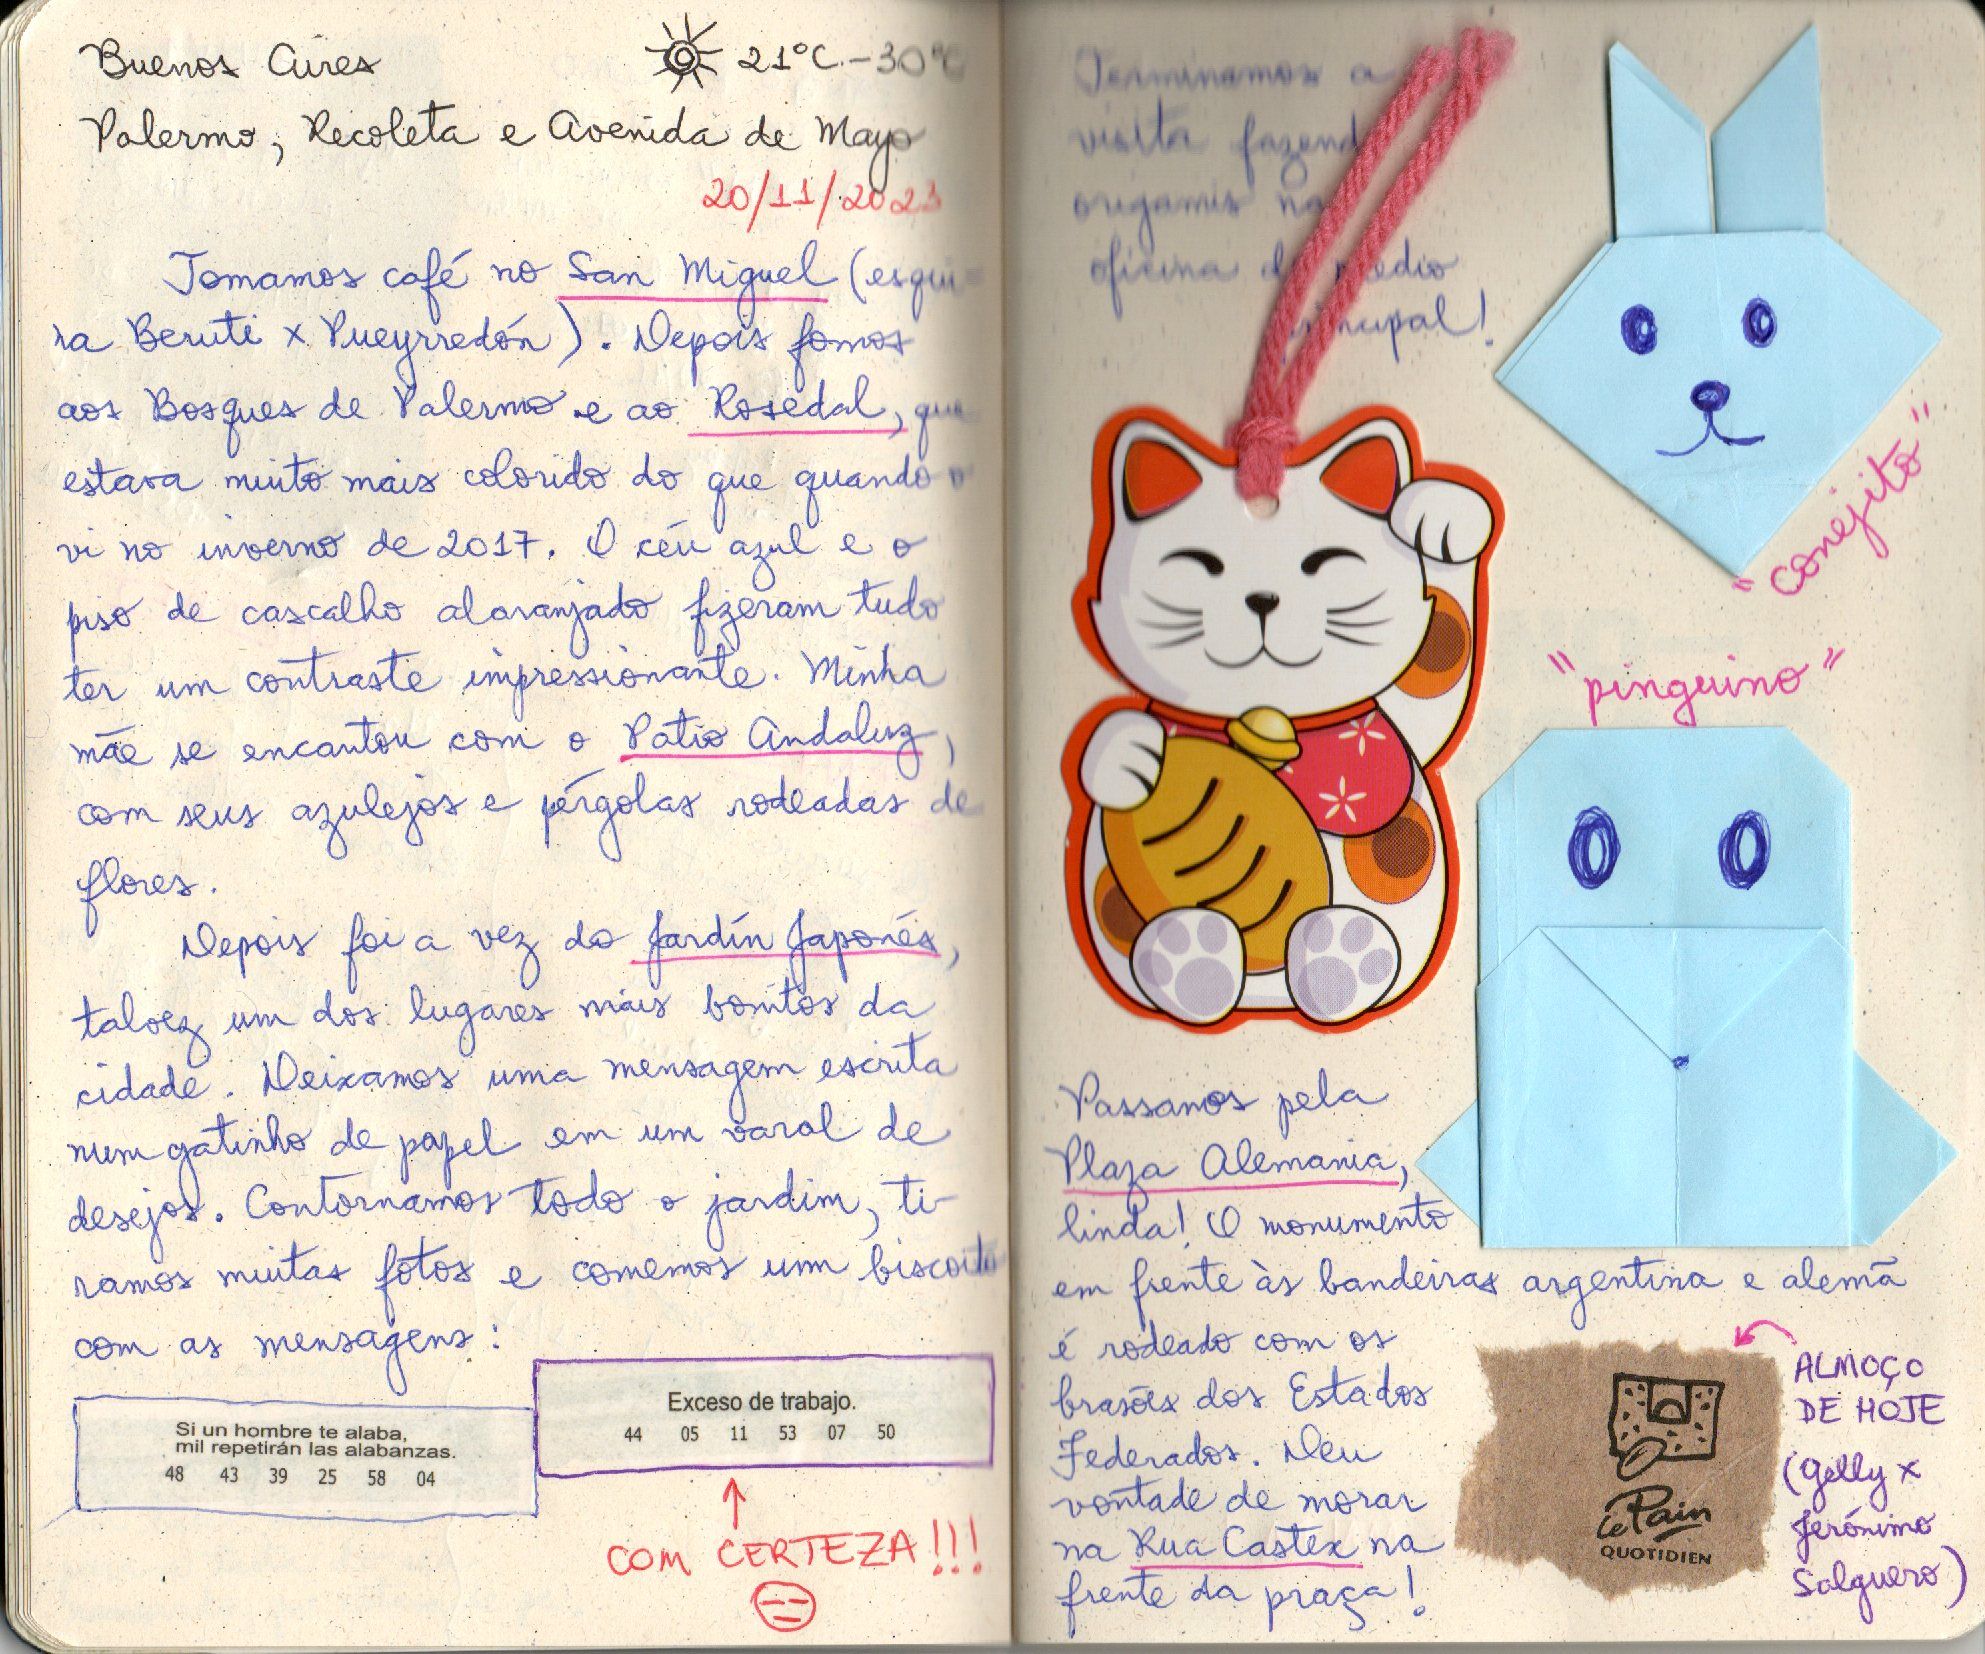 Buenos Aires
21°C - 30°C
Palermo, Recoleta e Avenida de Mayo
20/11/2023
Tomamos café no San Miguel (esqui-
na Beruti x Pueyrredón). Depois fomos
aos Bosques de Palermo e ao Rosedal, que
estava muito mais colorido do que quando o
vi no inverno de 2017. O céu azul e o
piso de cascalho alaranjado fizeram tudo
ter um contraste impressionante. Minha
mãe se encantou com o Patio Andaluz,
com seus azulejos e pérgolas rodeadas de
flores.
Depois foi a vez do Jardín Japonés,
talvez um dos lugares mais bonitos da
cidade. Deixamos uma mensagem escrita
num gatinho de papel em um varal de
desejos. Contornamos todo o jardim, ti-
ramos muitas fotos e comemos um biscoito
com as mensagens:
Si un hombre te alaba,
mil repetirán las alabanzas.
48 43 39 25 58 04
Exceso de trabajo.
44 05 11 53 07 50
COM CERTEZA!!!
Terminamos a
visita fazendo
origamis na
oficina do prédio
principal!
"conejito"
"pinguino"
Passamos pela
Plaza Alemania,
linda! O monumento
em frente às bandeiras argentina e alemã
é rodeado com os
brasões dos Estados
Federados. Deu
vontade de morar
na Rua Castex na
frente da praça!
le Pain
QUOTIDIEN
ALMOÇO
DE HOJE
(Gelly x
Jerónimo
Salguero)